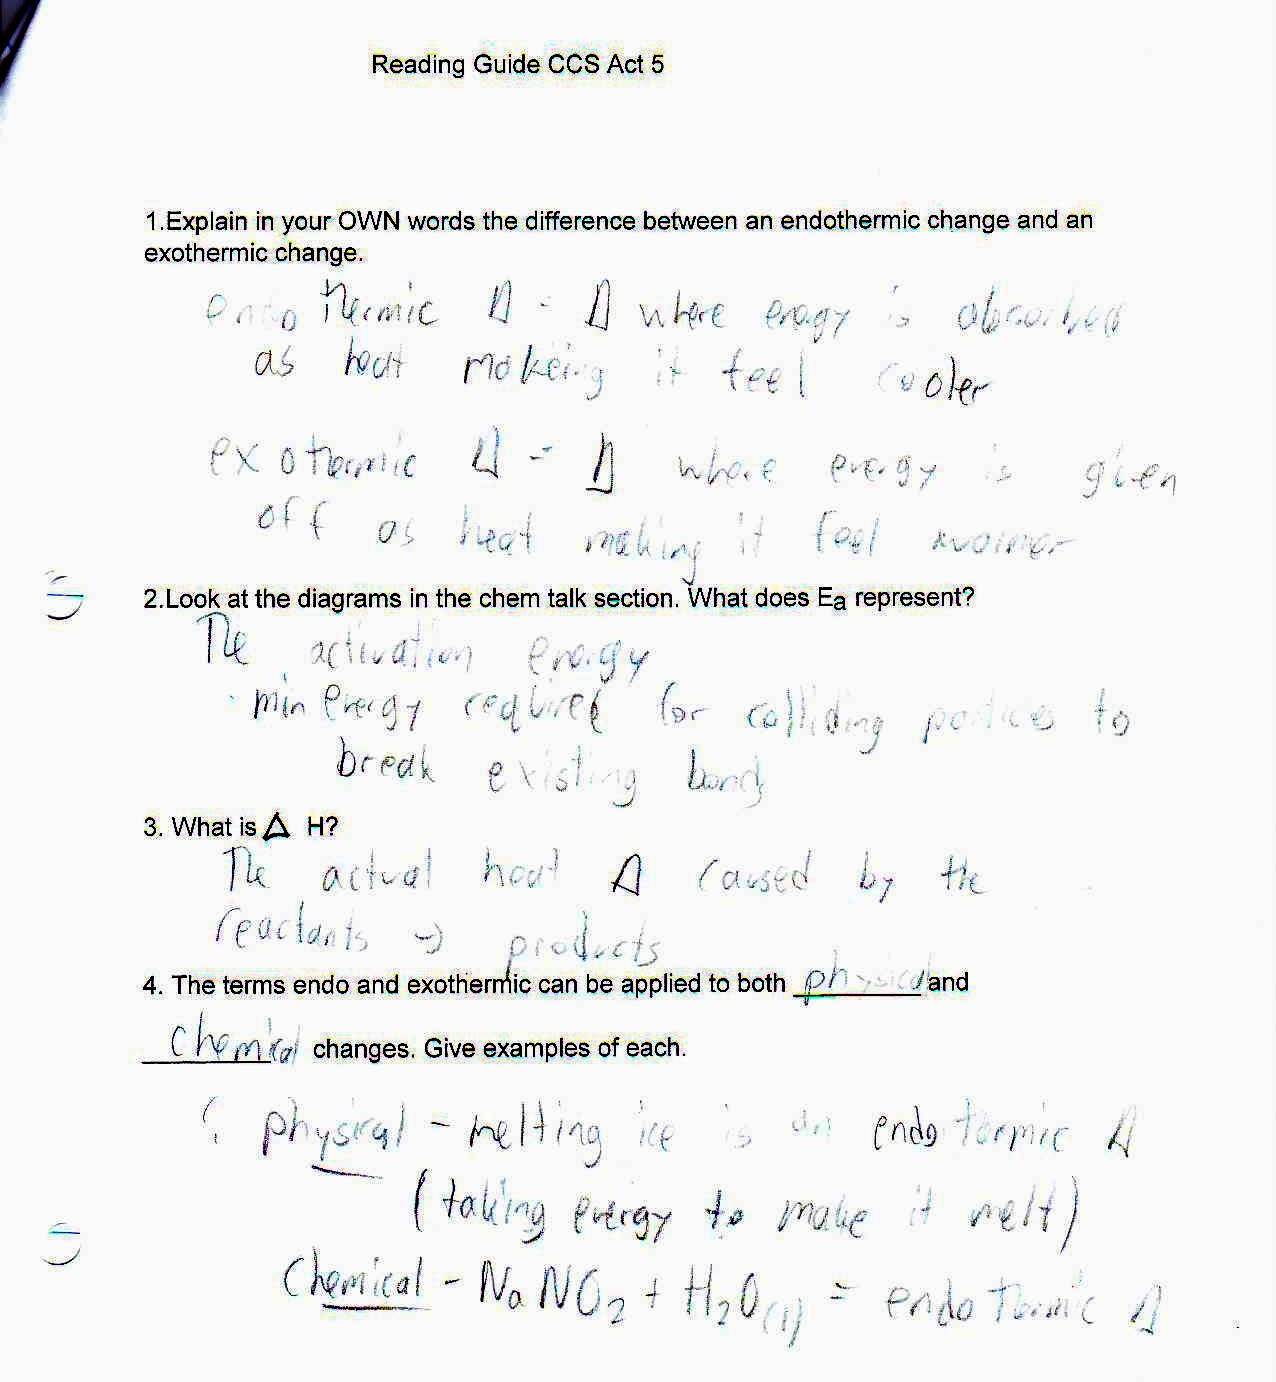 Reading Guide CCS Act 5
1.Explain in your OWN words the difference between an endothermic change and an
exothermic change.
endothermic Δ - Δ where energy is absorbed
as heat makeing it feel cooler
exothermic Δ - Δ where energy is given
off as heat making it feel warmer
2.Look at the diagrams in the chem talk section. What does Ea represent?
The activation energy
· min energy required for colliding particles to
break existing bonds
3. What is Δ H?
The actual heat Δ caused by the
reactants → products
4. The terms endo and exothermic can be applied to both physical and
chemical changes. Give examples of each.
physical - melting ice is an endotermic Δ
(taking energy to make it melt)
Chemical - NaNO2 + H2O(l) = endothermic Δ